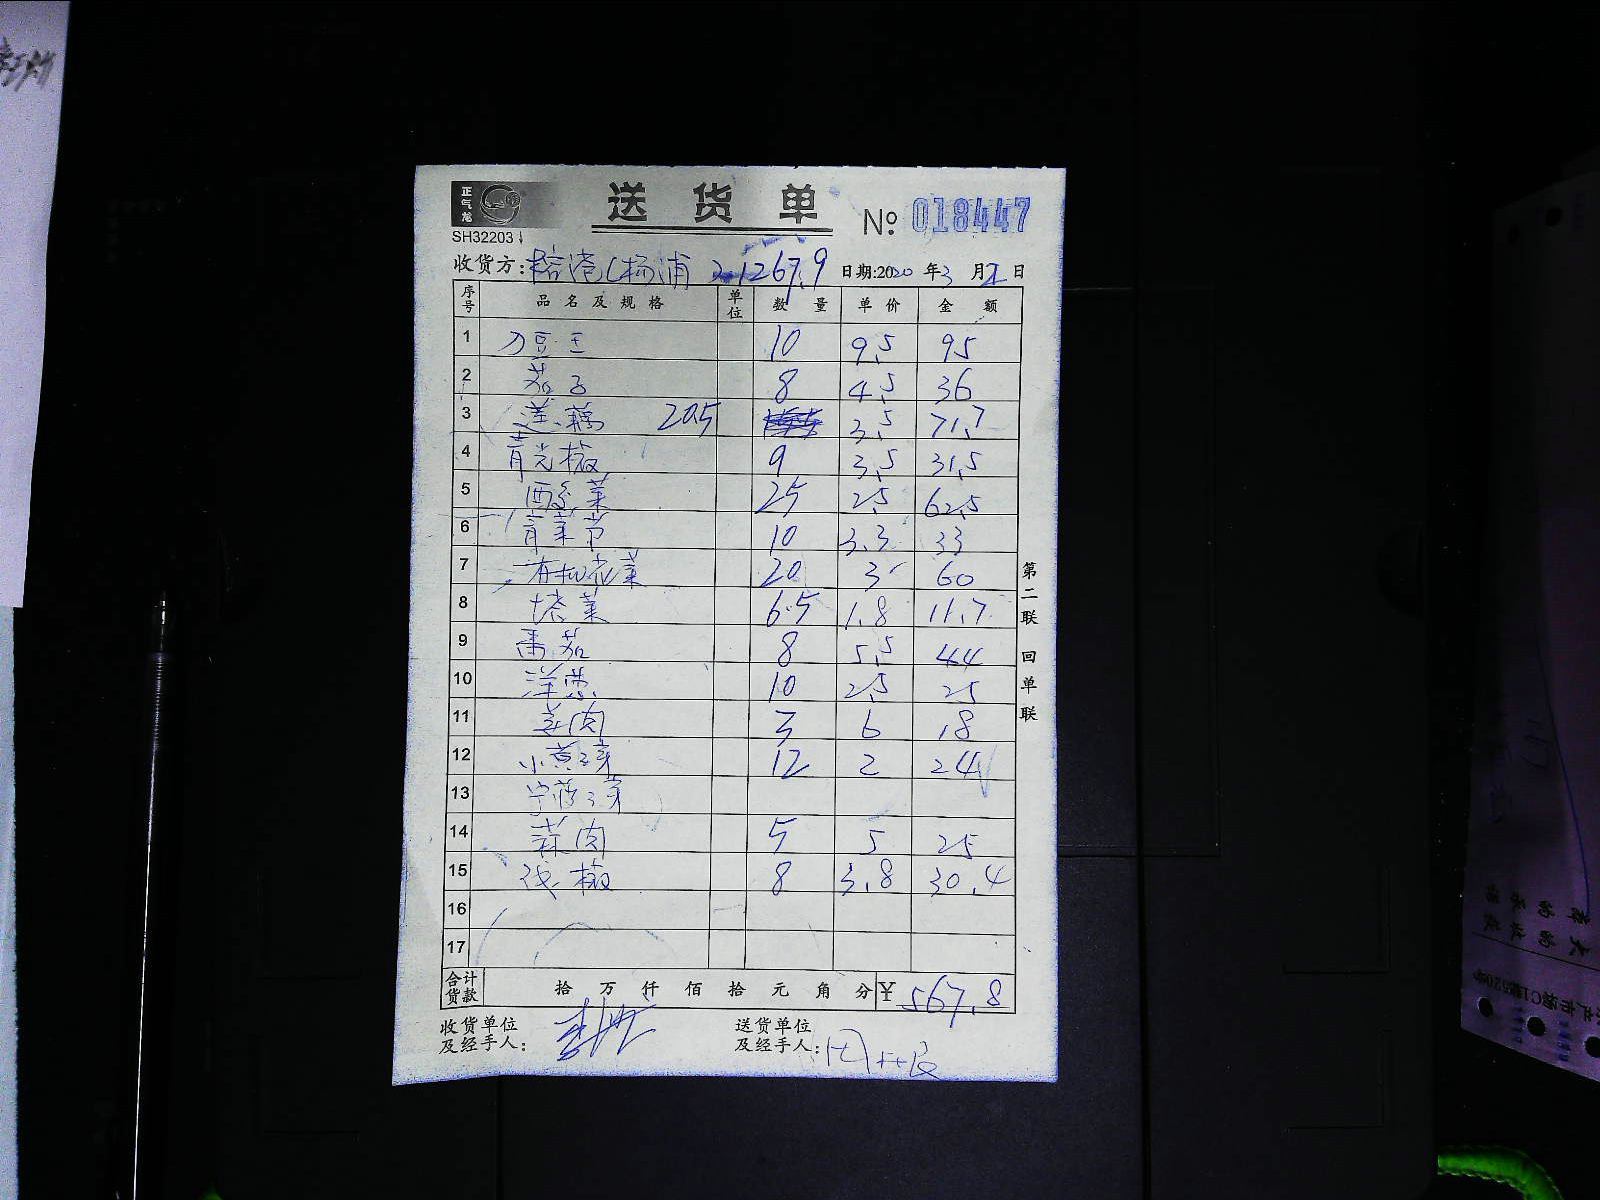 正气龙
送 货 单
№ 018447
SH32203
收货方: 榕港(杨浦 1267.9 日期:2020 年3 月 日
序号 品名及规格 单位 数量 单价 金额
1 刀豆王 10 9.5 95
2 茄子 8 4.5 36
3 莲藕 20.5 3.5 71.7
4 青尖椒 9 3.5 31.5
5 西生菜 25 2.5 62.5
6 青菜苗 10 3.3 33
7 有机花菜 20 3 60
8 塔菜 6.5 1.8 11.7
9 番茄 8 5.5 44
10 洋葱 10 2.5 25
11 姜肉 3 6 18
12 小黄芽 12 2 24
13
14 蒜肉 5 5 25
15 线椒 8 3.8 30.4
16
17
合计货款 拾 万 仟 佰 拾 元 角 分 ¥ 567.8
收货单位及经手人:
送货单位及经手人:
第二联 回单联